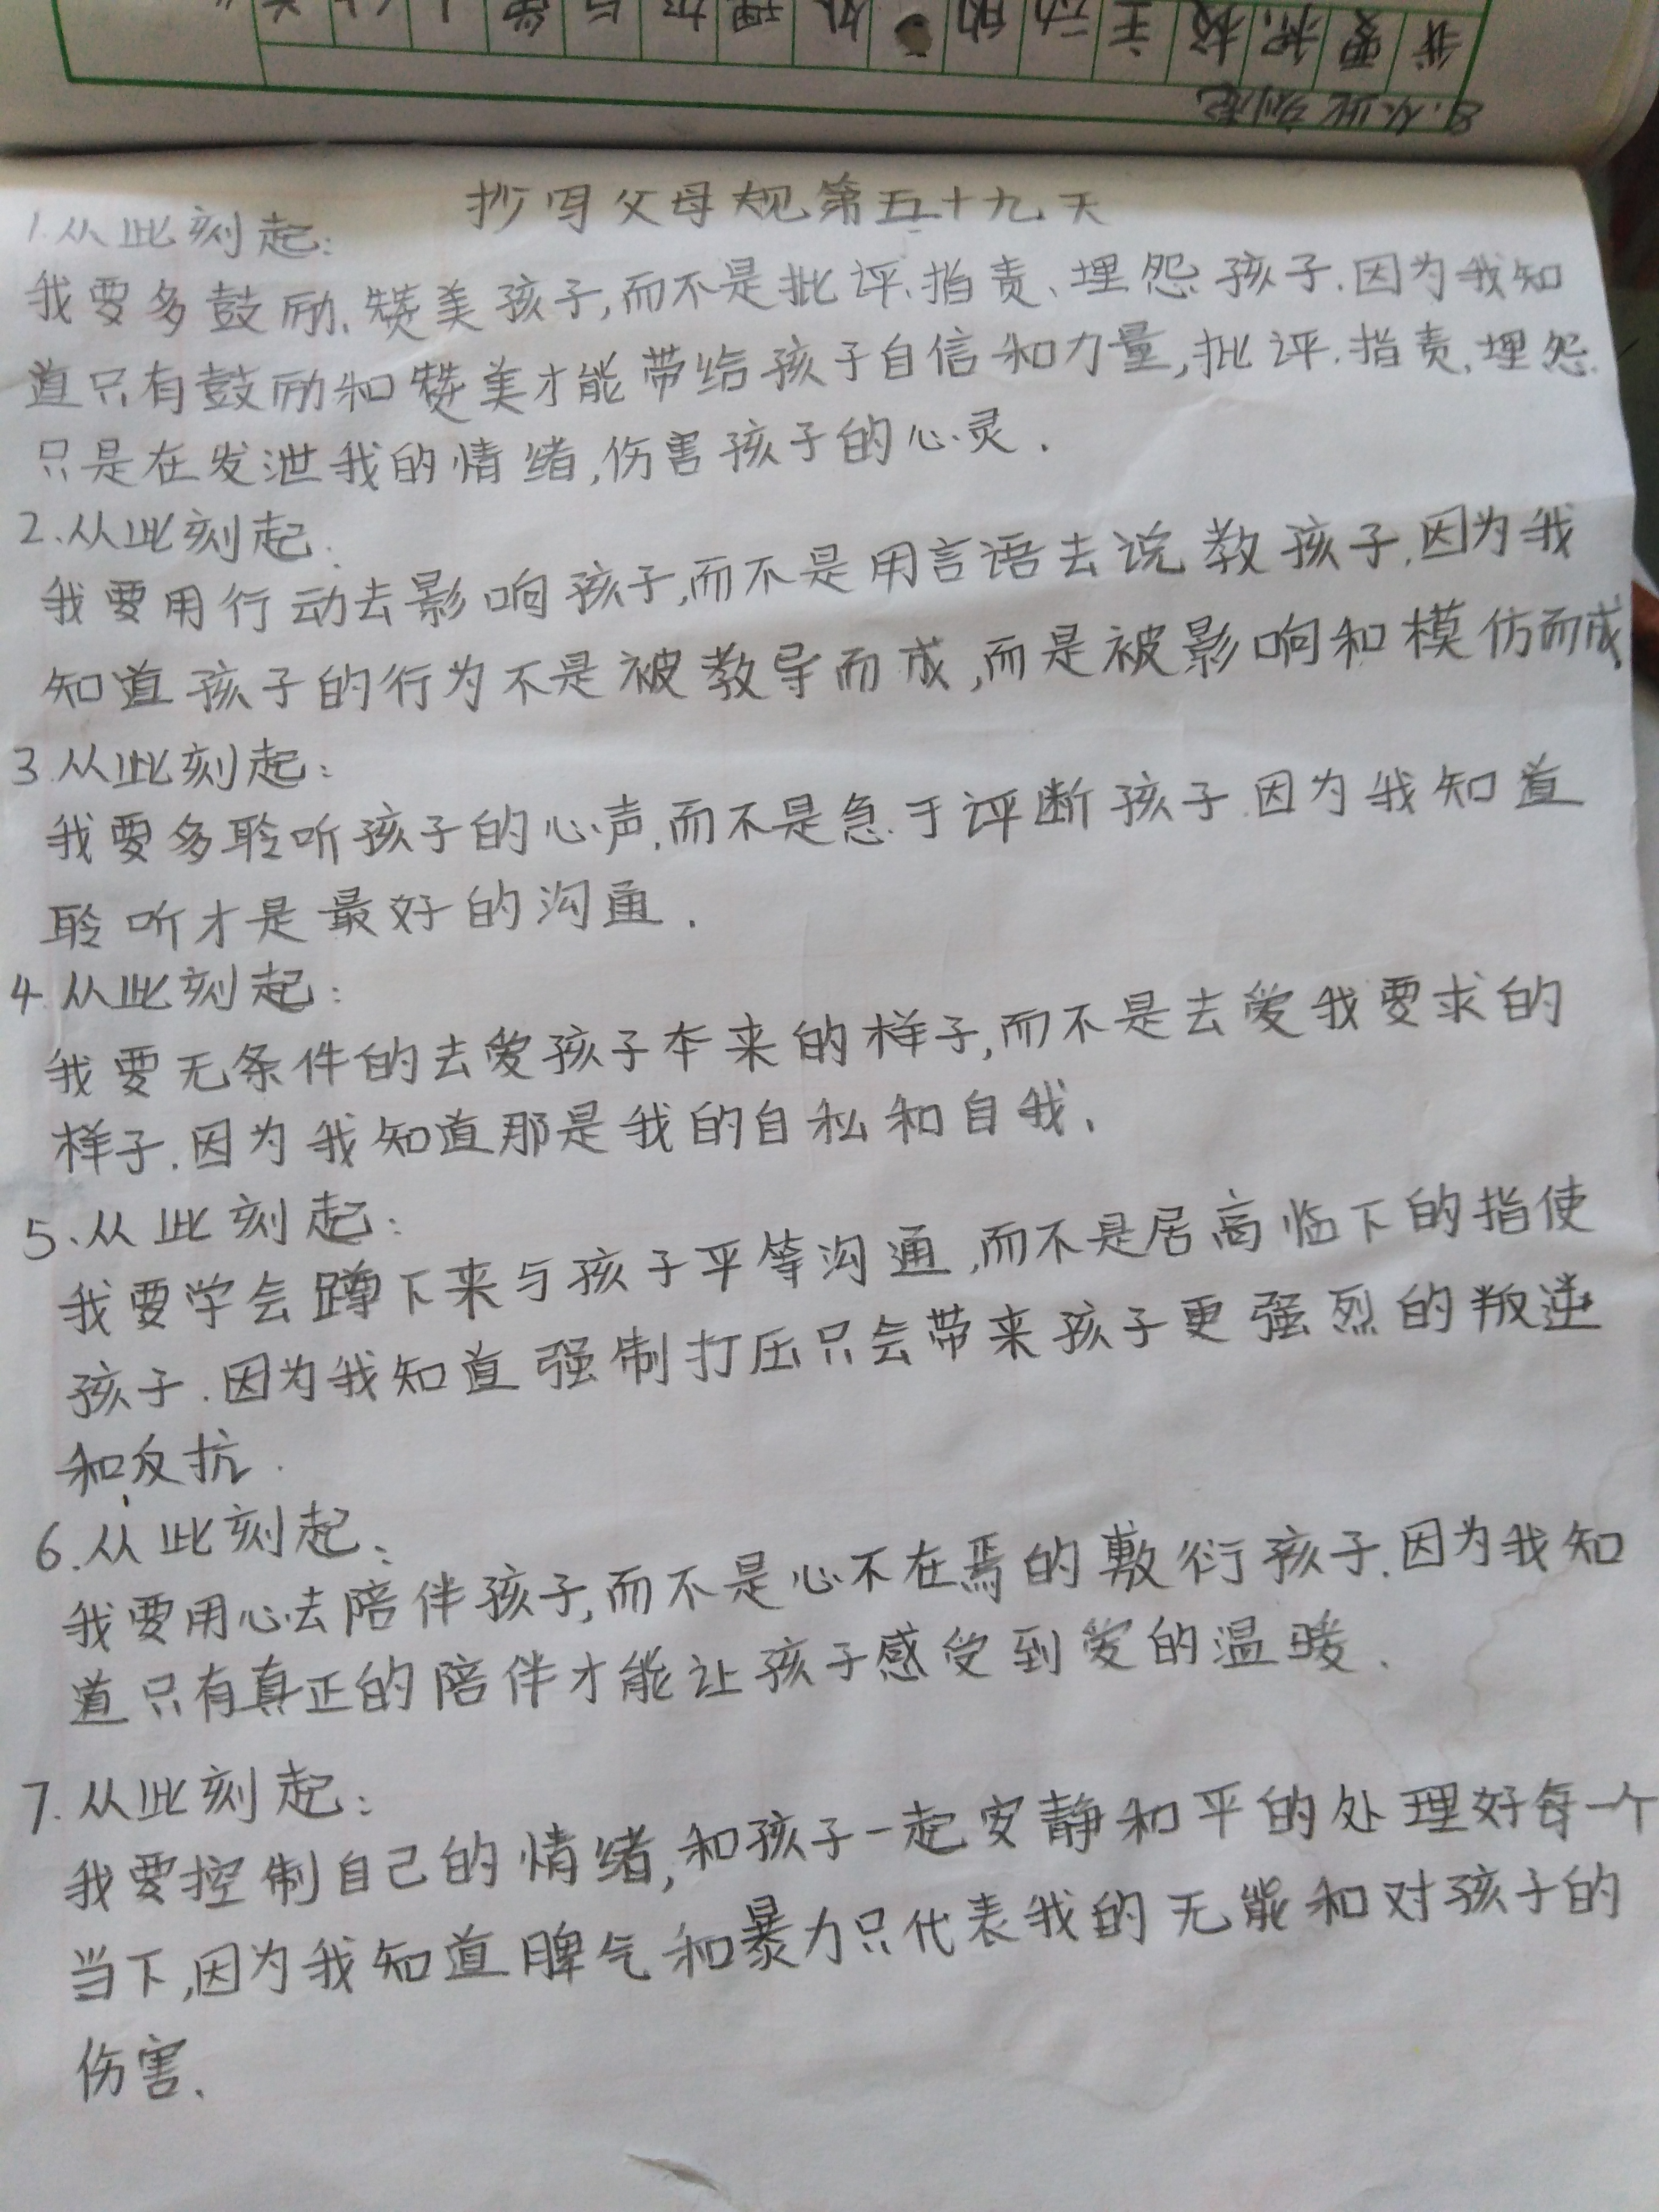 我要把被主动的
8.从此刻起
抄写父母规第五十九天
1.从此刻起:
我要多鼓励、赞美孩子,而不是批评、指责、埋怨孩子.因为我知
道只有鼓励和赞美才能带给孩子自信和力量,批评.指责.埋怨.
只是在发泄我的情绪,伤害孩子的心灵.
2、从此刻起:
我要用行动去影响孩子,而不是用言语去说教孩子,因为我
知道孩子的行为不是被教导而成,而是被影响和模仿而成.
3.从此刻起:
我要多聆听孩子的心声,而不是急于评断孩子.因为我知道
聆听才是最好的沟通.
4.从此刻起:
我要无条件的去爱孩子本来的样子,而不是去爱我要求的
样子.因为我知道那是我的自私和自我、
5、从此刻起:
我要学会蹲下来与孩子平等沟通,而不是居高临下的指使
孩子.因为我知道强制打压只会带来孩子更强烈的叛逆
和反抗.
6.从此刻起、
我要用心去陪伴孩子,而不是心不在焉的敷衍孩子.因为我知
道只有真正的陪伴才能让孩子感受到爱的温暖.
7.从此刻起:
我要控制自己的情绪,和孩子一起安静和平的处理好每一个
当下,因为我知道脾气和暴力只代表我的无能和对孩子的
伤害、